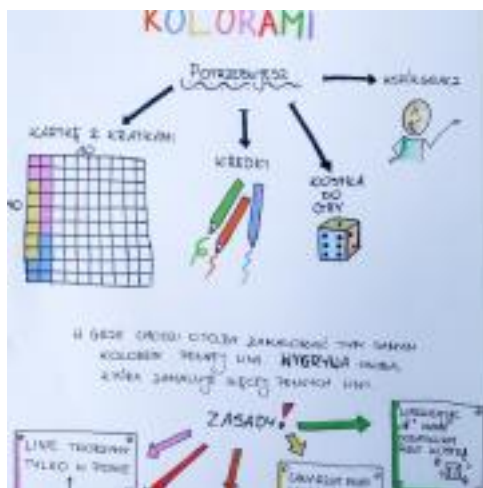 KOLORAMI
POTRZEBUJESZ
WSPÓŁGRACZ
KARTKĘ Z KRATKAMI
10
KREDKI
KOSTKA
DO
GRY
10
W GRZE CHODZI O TO, BY ZAMALOWAĆ TYM SAMYM
KOLOREM PEŁNĄ LINIĘ. WYGRYWA OSOBA,
KTÓRA ZAMALUJE WIĘCEJ PEŁNYCH LINII.
ZASADY!
LINIE TWORZYMY
TYLKO W PIONIE